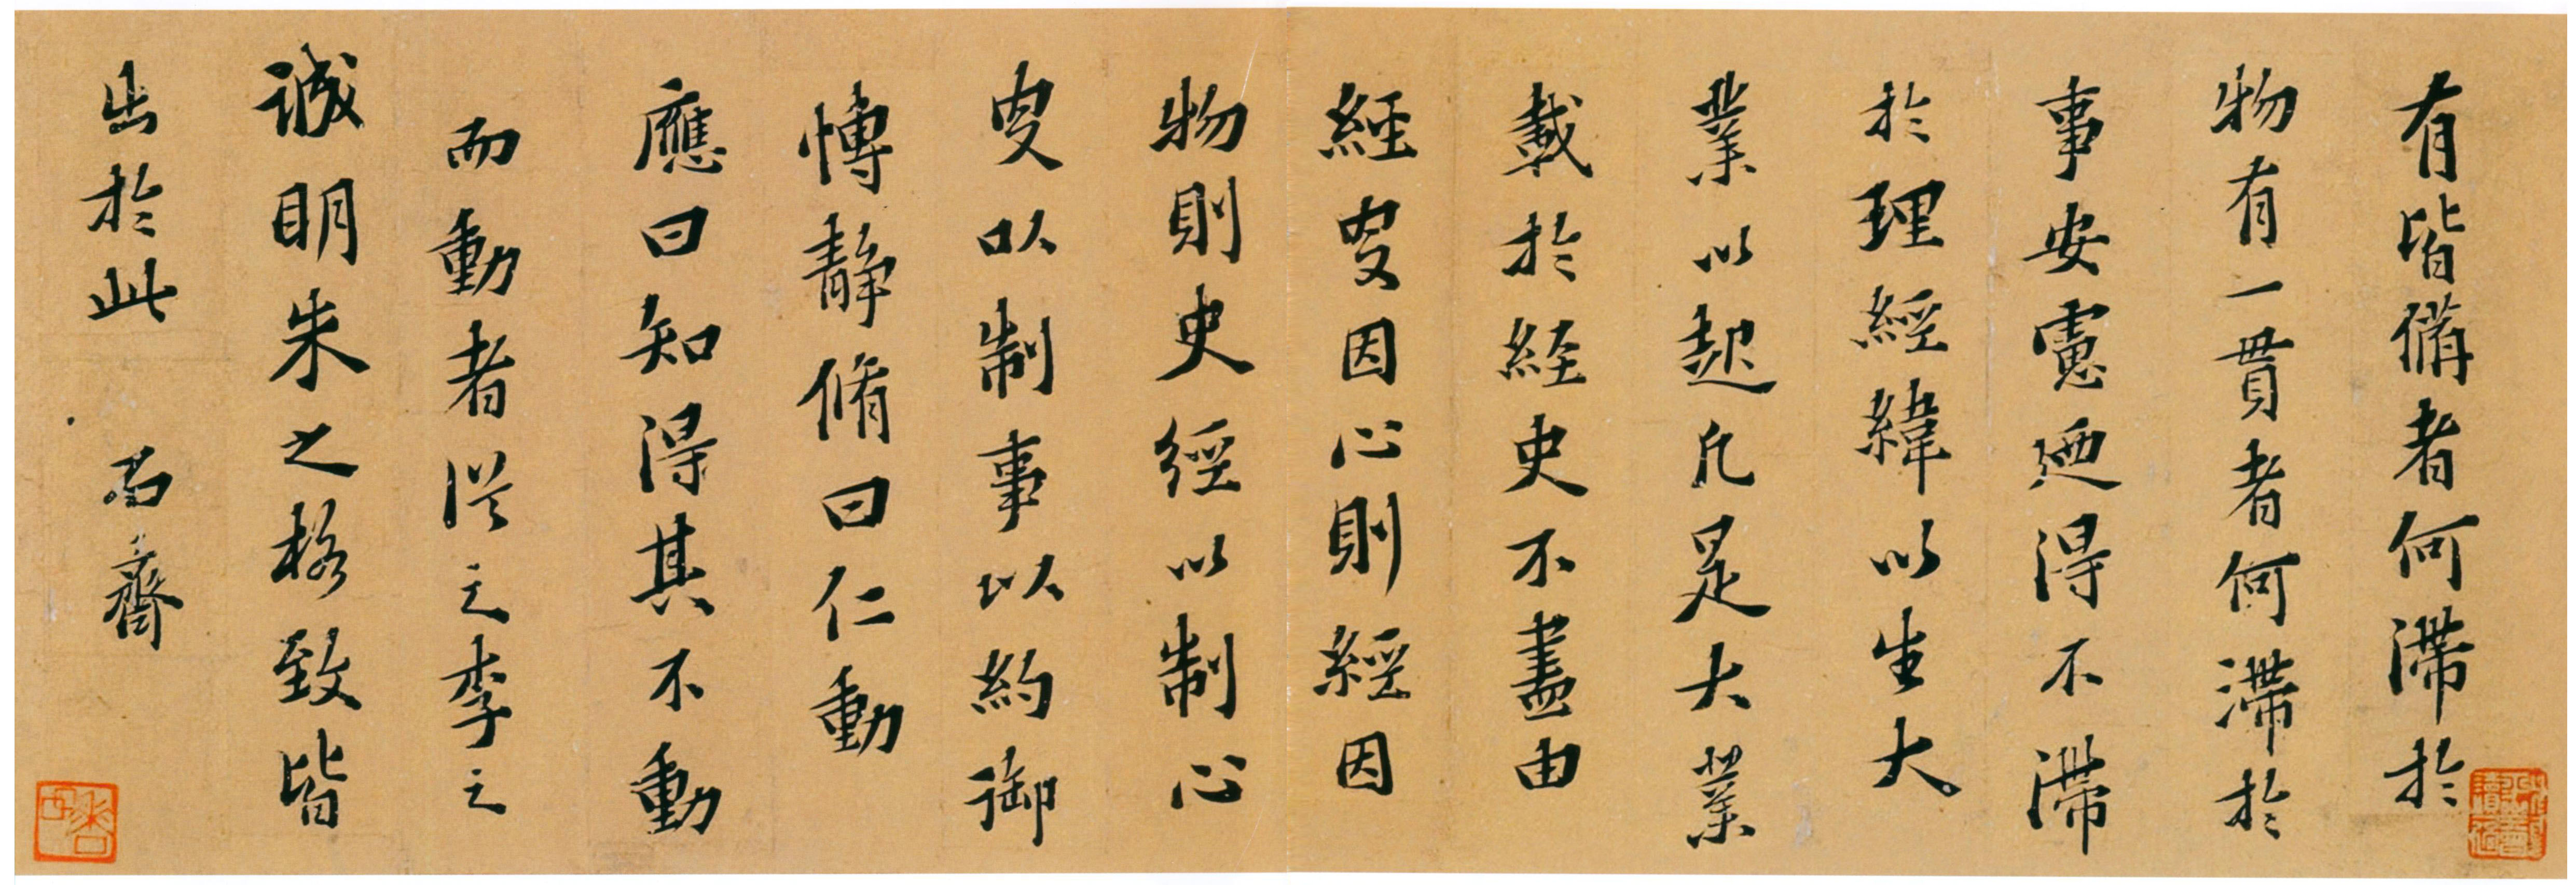 有皆備者何滯於
物有一貫者何滯於
事安慮迺得不滯
於理經緯以生大
業以起凡是大業
載於経史不盡由
經史因心則經因
物則史經以制心
史以制事以約御
博靜脩曰仁動
應曰知得其不動
而動者從之李之
誠明朱之格致皆
出於此 石齋